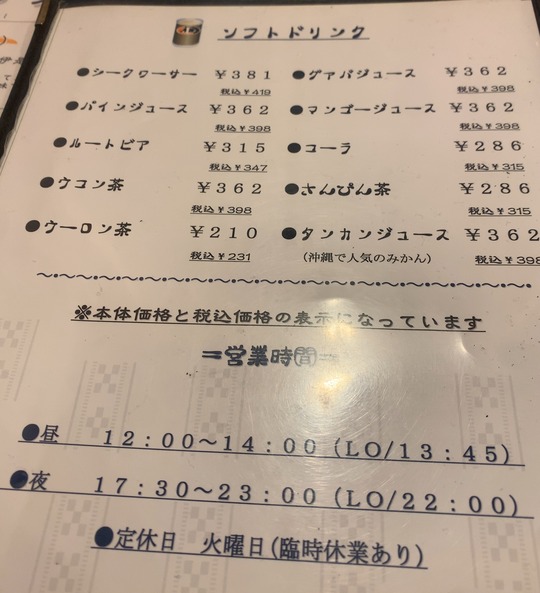 ソフトドリンク
●シークヮーサー ￥３８１ ●グァバジュース ￥３６２
税込￥419 税込￥398
●パインジュース ￥３６２ ●マンゴージュース ￥３６２
税込￥398 税込￥398
●ルートビア ￥３１５ ●コーラ ￥２８６
税込￥347 税込￥315
●ウコン茶 ￥３６２ ●さんぴん茶 ￥２８６
税込￥398 税込￥315
●ウーロン茶 ￥２１０ ●タンカンジュース ￥３６２
税込￥231 （沖縄で人気のみかん） 税込￥398
※本体価格と税込価格の表示になっています
＝営業時間＝
●昼 １２：００～１４：００（ＬＯ/１３：４５）
●夜 １７：３０～２３：００（ＬＯ/２２：００）
●定休日 火曜日（臨時休業あり）